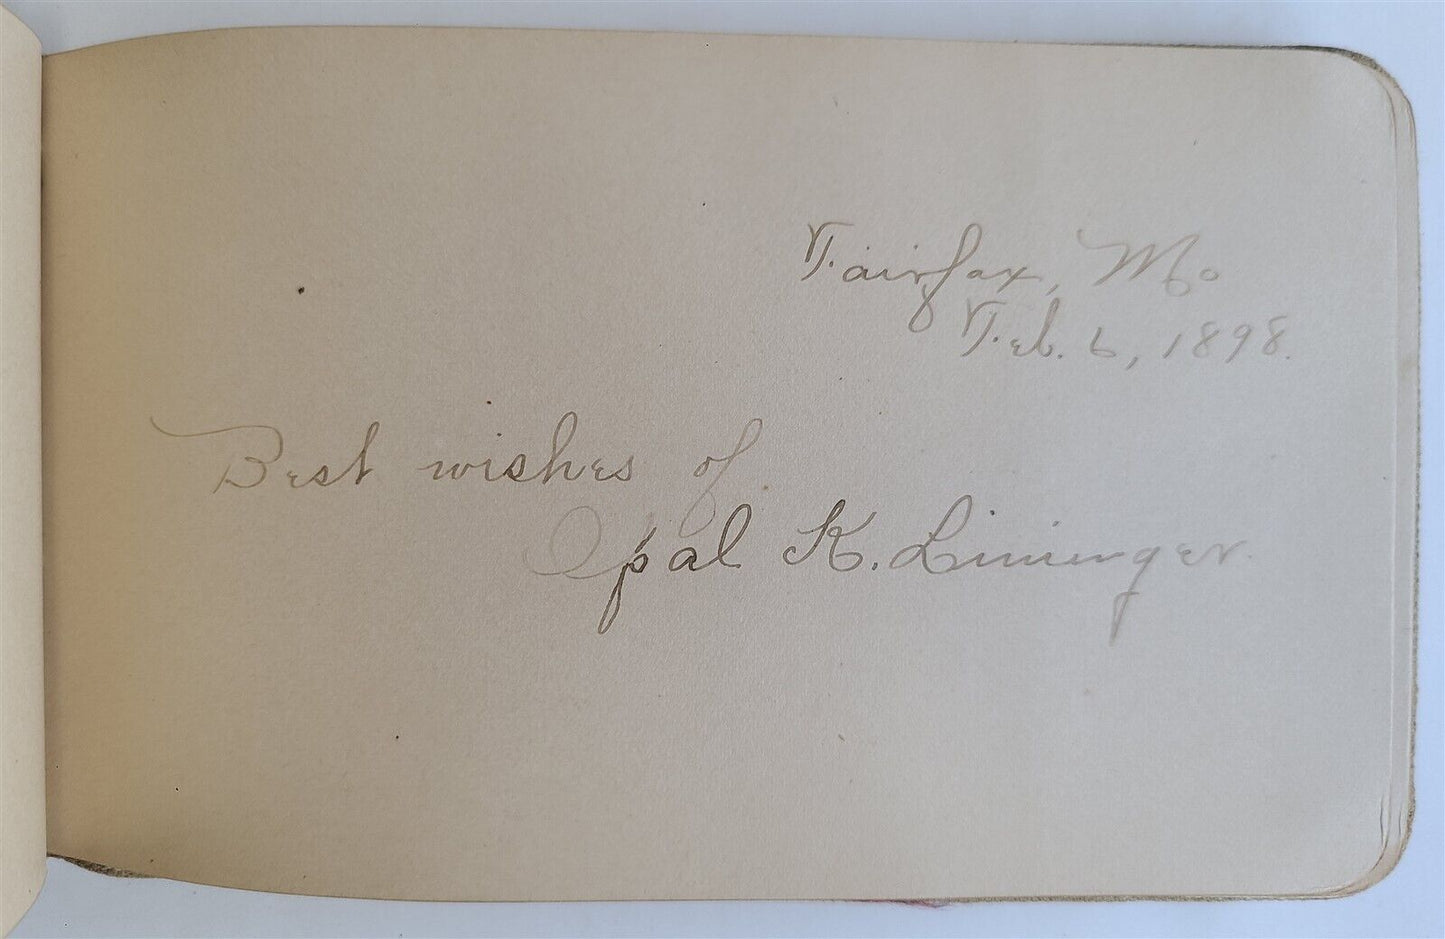 Fairfax, Mo
Feb. 6, 1898.
Best wishes of
Opal K. Lininger.